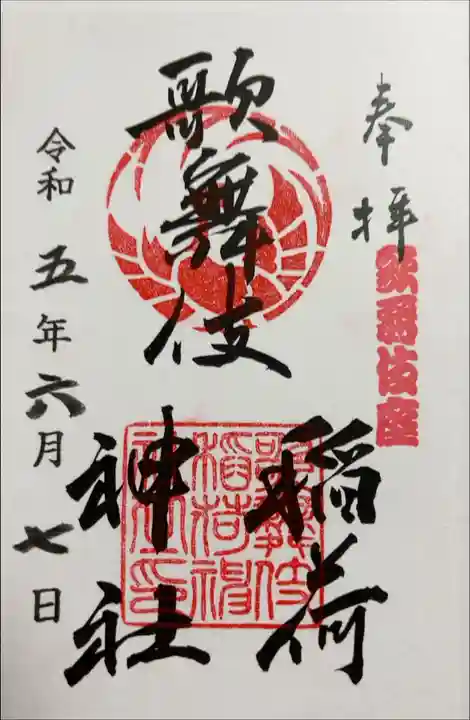 奉拝
歌舞伎座
歌舞伎
稲荷
神社
歌舞伎
稲荷神
社之印
令和五年六月七日